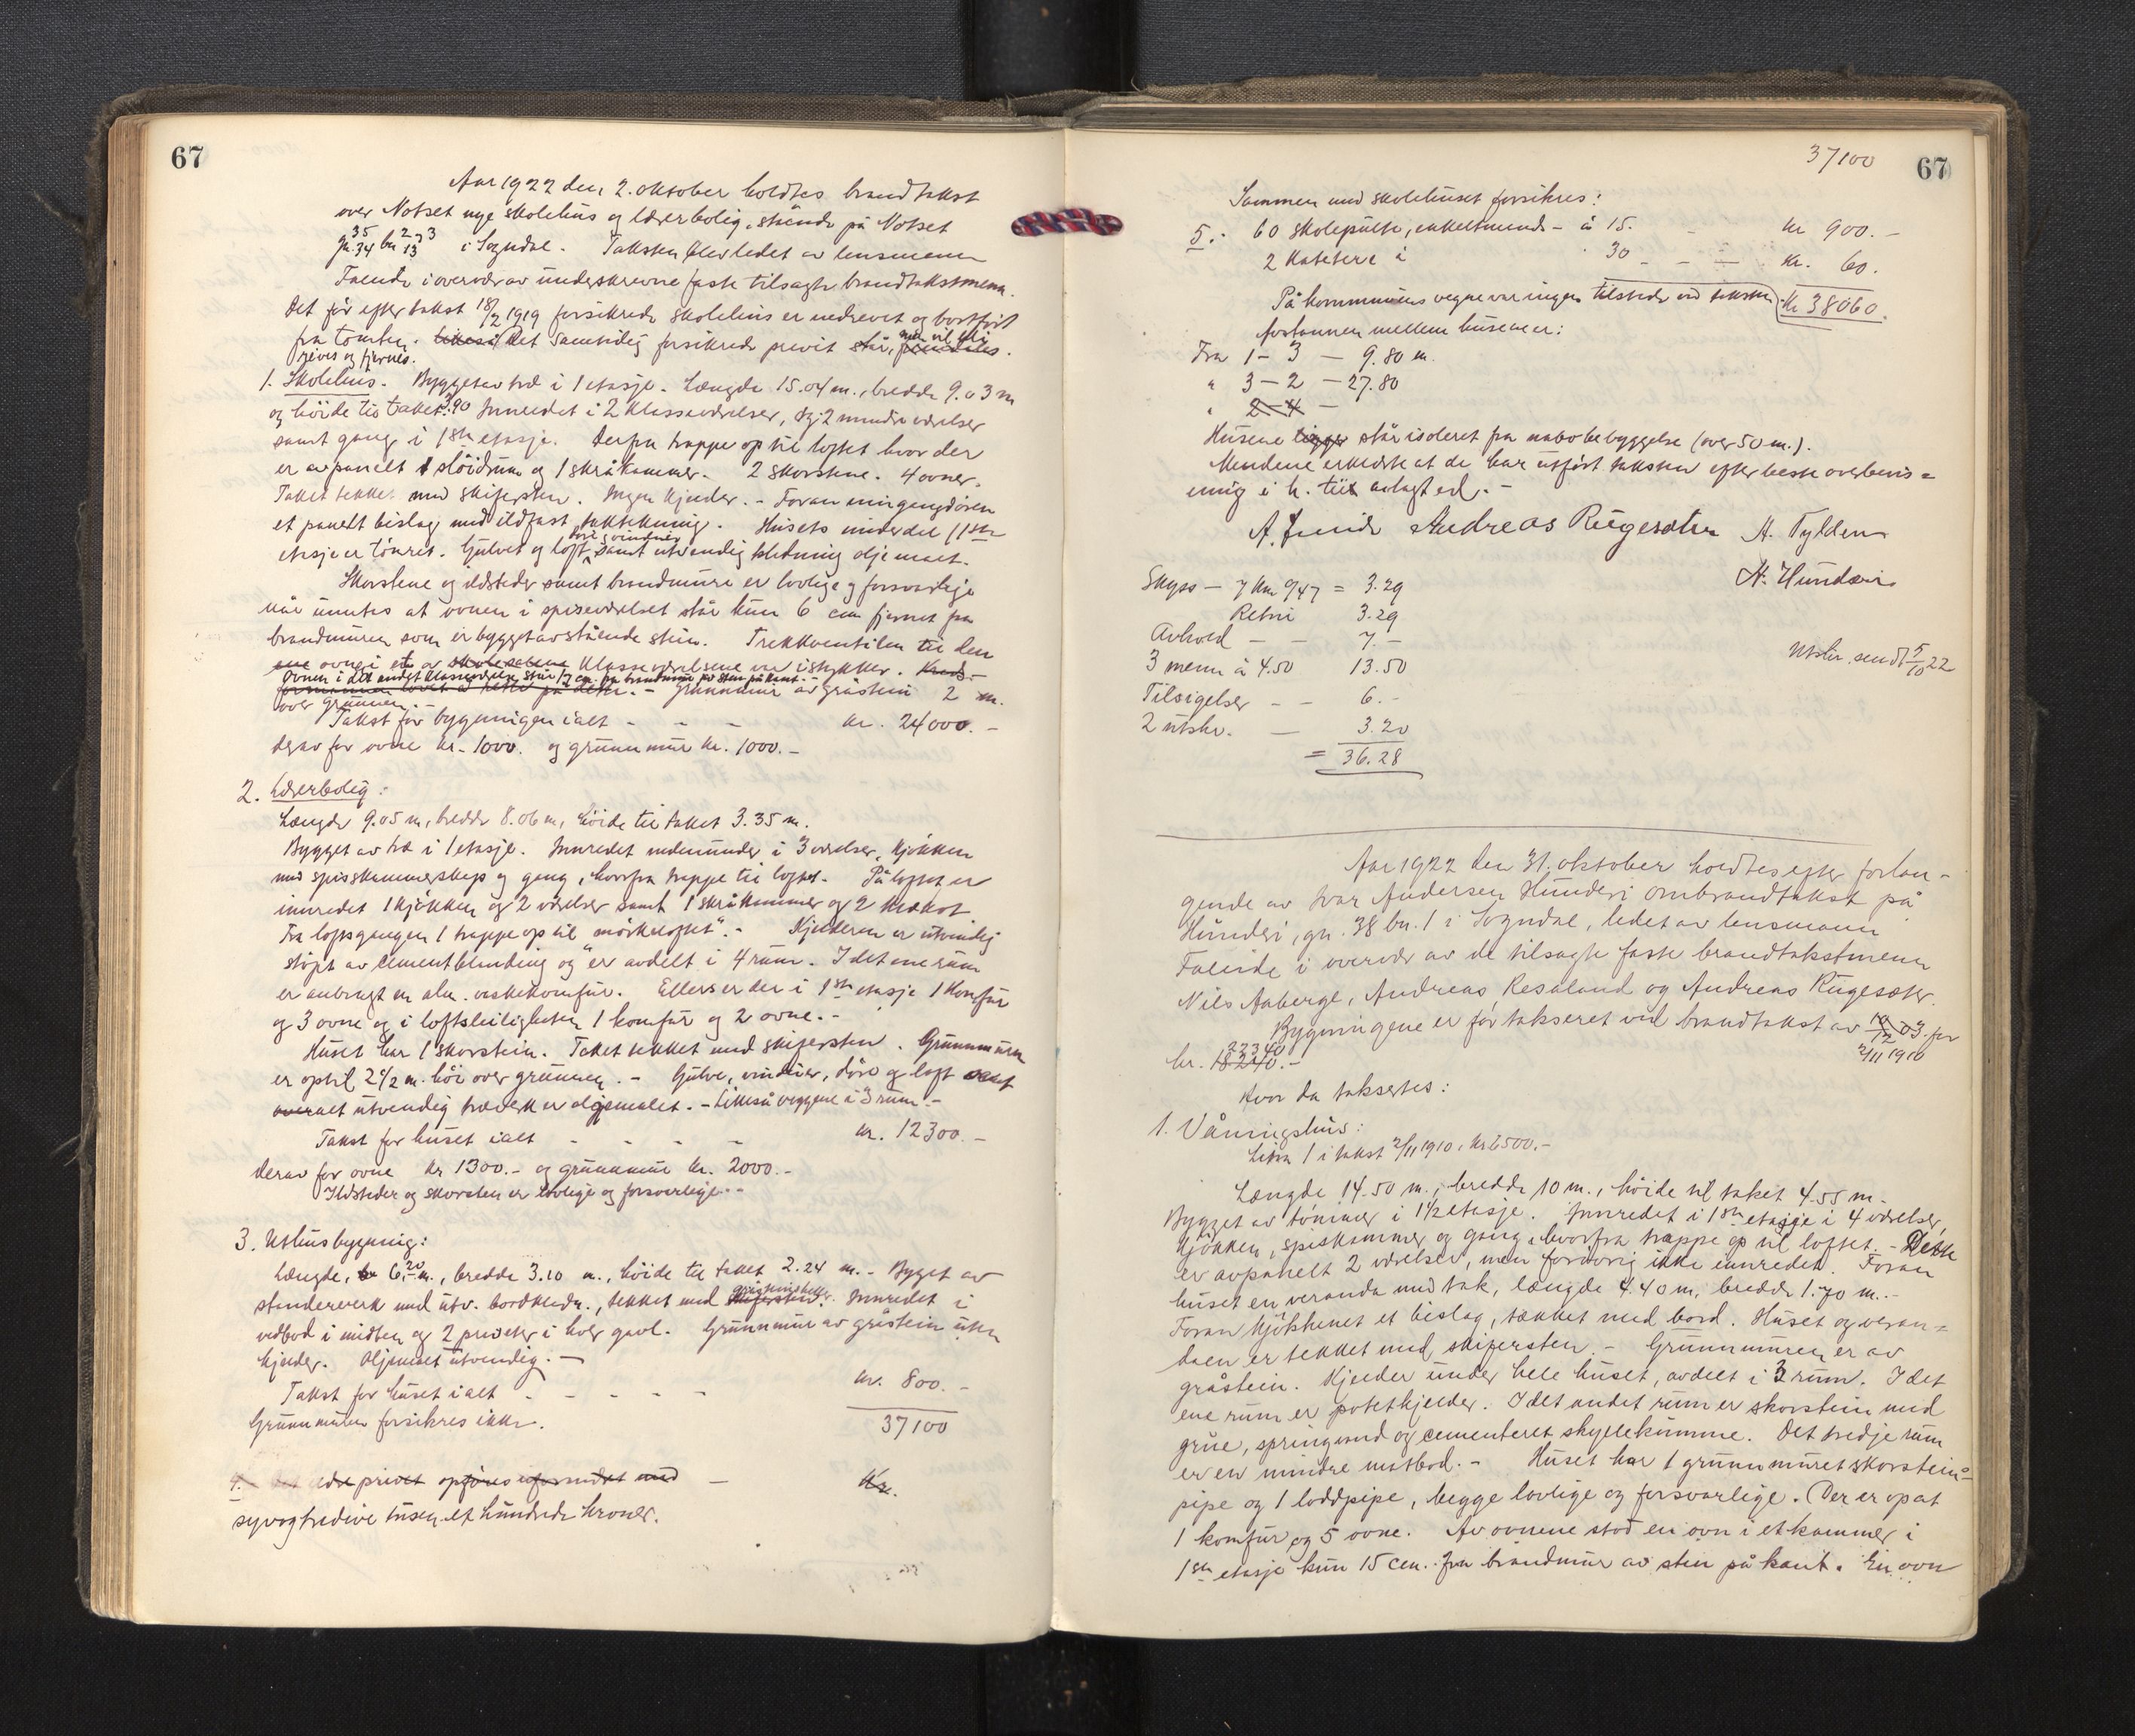 67
Aar 1922 den 2. oktober holdtes brandtakst
over Notset nye skolehus og lærerbolig, stående på Notset
35 2 3
gn. 34 bn 13 i Sogndal. Taksten blev ledet av lensmann
Faleide i overvær av underskrevne faste tilsagte brandtakstmenn.
Det før efter takst 18/2 1919 forsikrede skolehus er nedrevet og bortført
fra tomten. Det samtidig forsikrede privet står, men vil bli
rives og fjernes.
1. Skolehus. Bygget av træ i 1 etasje. Længde 15.04 m., bredde 9.03 m
og høide til taket 3.90 Innredet i 2 klasseværelser, og 2 mindre værelser
samt gang i 1ste etasje. Derfra trappe op til loftet hvor der
er avpanelt 1 sløidrum og 1 skråkammer. 2 skorstene. 4 ovner.
Taket tekket med skifersten. Ingen kjelder. - Foran inngangdøren
et panelt bislag med ildfast taktekning. Husets underdel (1ste
etasje er tømret. Gulvet og loft, dører, vinduer samt utvendig kledning oljemalt.
Skorstene og ildsteder samt brandmure er lovlige og forsvarlige
når unntas at ovnen i spiseværelset står kun 6 cm fjernet fra
brandmuren som er bygget av stående sten. Trekkventilen til den
ene ovn i et av skolesalene klasseværelsene var istykker.
Ovnen i det andet klasseværelse står 17 cm. fra brandmur av sten på kant. -
Grunnmur av gråstein 2 m.
over grunnen. -
Takst for bygningen ialt - - - kr. 24000. -
derav for ovne kr. 1000. og grunnmur kr. 1000. -
2. Lærerbolig:
Længde 9.05 m, bredde 8.06 m, høide til taket 3.35 m.
Bygget av træ i 1 etasje. Innredet nedenunder i 3 værelser, kjøkken
med spisskammerskap og gang, hvorfra trappe til loftet. På loftet er
innredet 1 kjøkken og 2 værelser samt 1 skråkammer og 2
Fra loftsgangen 1 trappe op til "mørkeloftet". - Kjelderen er utvendig
støpt av cementblanding og er avdelt i 4 rum. I det ene rum
er anbragt en alm. vaskekomfur. Ellers er der i 1ste etasje 1 komfur
og 3 ovne og i loftsleiligheten 1 komfur og 2 ovne. -
Huset har 1 skorstein. Taket tekket med skifersten. Grunnmuren
er optil 2 1/2 m. høi over grunnen. - Gulve, vinduer, døre og loft samt
alt utvendig træverk er oljemalet. - Likeså veggene i 3 rum. -
Takst for huset ialt - - - - kr. 12300. -
derav for ovne kr 1300. - og grunnmur kr. 2000. -
Ildsteder og skorsten er lovlige og forsvarlige. -
3. Uthusbygning:
Længde, 6.20 m., bredde 3.10 m., høide til taket 2.24 m. - Bygget av
stenderverk med utv. bordkledn., tekket med skifersten. Innredet i
vedbod i midten og 2 priveter i hver gavl. Grunnmur av gråstein uten
kjelder. Oljemalet utvendig. -
Takst for huset ialt - - - - - kr. 800. -
Grunnmuren forsikres ikke. 37100
4. Det ædre privet opføres uforandret med - Kr.
syvogtredive tusen et hundrede kroner.
37100 67
Sammen med skolehuset forsikres:
5: 60 skolepulte, enkeltmands - á 15. - kr 900. -
2 Katetere á 30 - - - kr. 60.
På kommunens vegne var ingen tilstede ved taksten. Kr 38060.
Avstannen mellem husene er:
Fra 1 - 3 - 9.80 m.
" 3 - 2 - 27.80
" 2 - 4 -
Husene ligger står isoleret fra nabobebyggelse (over 50 m.).
Mendene erklærte at de har utført taksten efter beste overbevis=
ning i h. til avlagt ed. -
Andreas Rugesæter A. Tylden
N. Hunderi
Skyss - 7 km 0/47 = 3.29
Retur 3.29
Avhold - - 7. -
3 menn á 4.50 13.50
Tilsigelser - - 6. -
2 utskr. - 3.20
= 36.28
Utskr. sendt 5/10 22
Aar 1922 den 31. oktober holdtes efter forlan-
gende av Ivar Andersen Hunderi ombrandtakst på
Hunderi, gn. 38 bn. 1 i Sogndal, ledet av lensmann
Faleide i overvær av de tilsagte faste brandtakstmenn
Nils Aaberge, Andreas Resaland og Andreas Rugesæter.
Bygningene er før takseret ved brandtakst av 10/12 03. for
2/11 1910
22340
kr. 18240. -
Hvor da taksertes:
1. Våningshus:
Litra 1 i takst 2/11 1910, kr 6500. -
Længde 14.50 m., bredde 10 m., høide til taket 4.55 m. -
Bygget av tømmer i 1 1/2 etasje. Innredet i 1ste etasje i 4 værelser,
kjøkken, spiskammer og gang, hvorfra trappe op til loftet. - Dette
er avpanelt 2 værelser, men forøvrig ikke innredet. Foran
huset en veranda med tak, længde 4.40 m, bredde 1.70 m. -
Foran kjøkkenet et bislag, tækket med bord. Huset og veran=
daen er tekket med skifersten. - Grunnmuren er av
gråstein. Kjelder under hele huset, avdelt i 3 rum. I det
ene rum er potetkjelder. I det andet rum er skorstein med
grue, springvand og cementeret skyllekumme. Det tredje rum
er en mindre matbod. - Huset har 1 grunnmuret skorsteins-
pipe og 1 loddpipe, begge lovlige og forsvarlige. Der er opsat
1 komfur og 5 ovne. Av ovnene stod en ovn i et kammer i
1ste etasje kun 15 cm. fra brandmur av sten på kant. En ovn